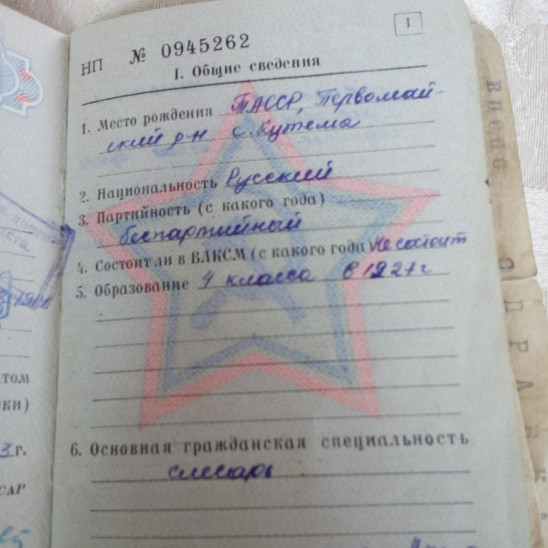 1
НП № 0945262
I. Общие сведения
1. Место рождения ТАССР, Первомай-
ский р-н с. Кутема
2. Национальность Русский
3. Партийность (с какого года)
беспартийный
4. Состоит ли в ВЛКСМ (с какого года) не состоит
5. Образование 4 класса в 1927 г
6. Основная гражданская специальность
слесарь
том
ки)
3 г.
САР